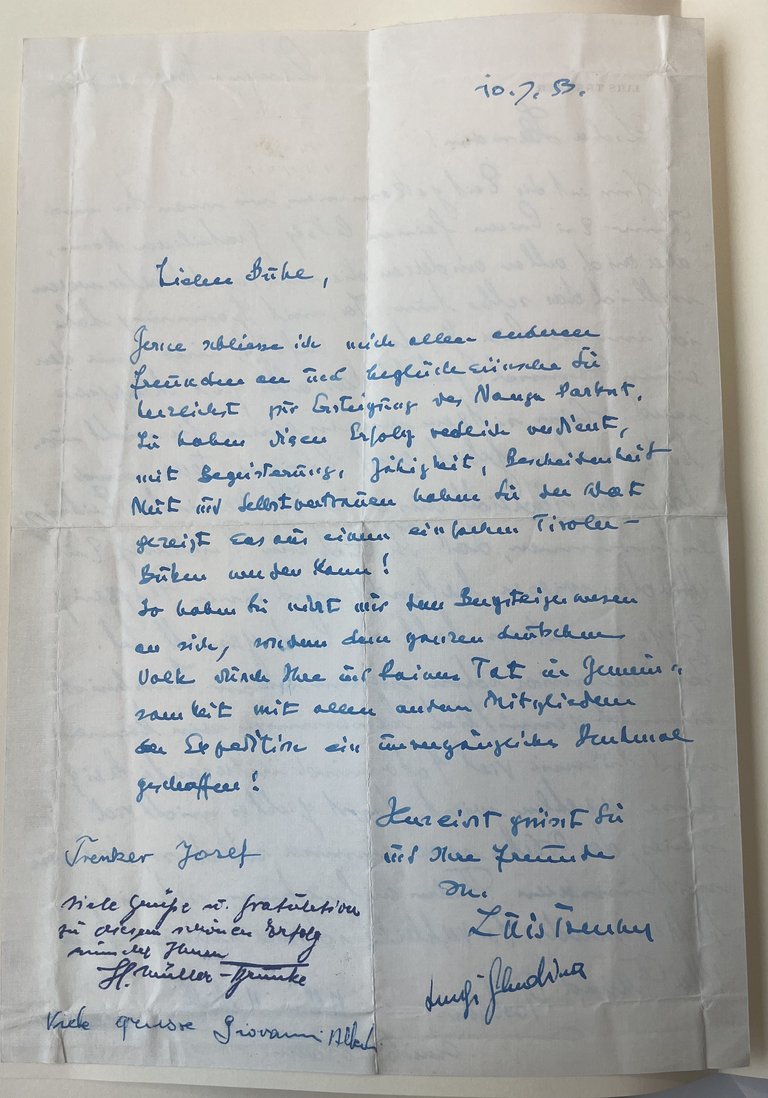 10.7.53.
Lieber Buhl,
Gerne schliesse ich mich allen anderen
Freunden an und beglückwünsche Sie
herzlichst zur Ersteigung des Nanga Parbat.
Sie haben diesen Erfolg redlich verdient,
mit Begeisterung, Zähigkeit, Bescheidenheit
Mut und Selbstvertrauen haben Sie der Welt
gezeigt was aus einem einfachen Tiroler-
Buben werden kann!
So haben Sie nicht nur dem Bergsteigerwesen
an sich, sondern dem ganzen deutschen
Volk durch Ihre Tat in Gemein-
samkeit mit allen andern Mitgliedern
der Expedition ein unvergängliches Denkmal
geschaffen!
Herzlichst grüsst Sie
und Ihre Freunde
Ihr
Luis Trenker
Trenker Josef
Viele Grüße u. Gratulation
zu diesem schönen Erfolg
wünscht Ihnen
H. Müller-Brunke
Luigi Ghedina
Viele grüsse Giovanni